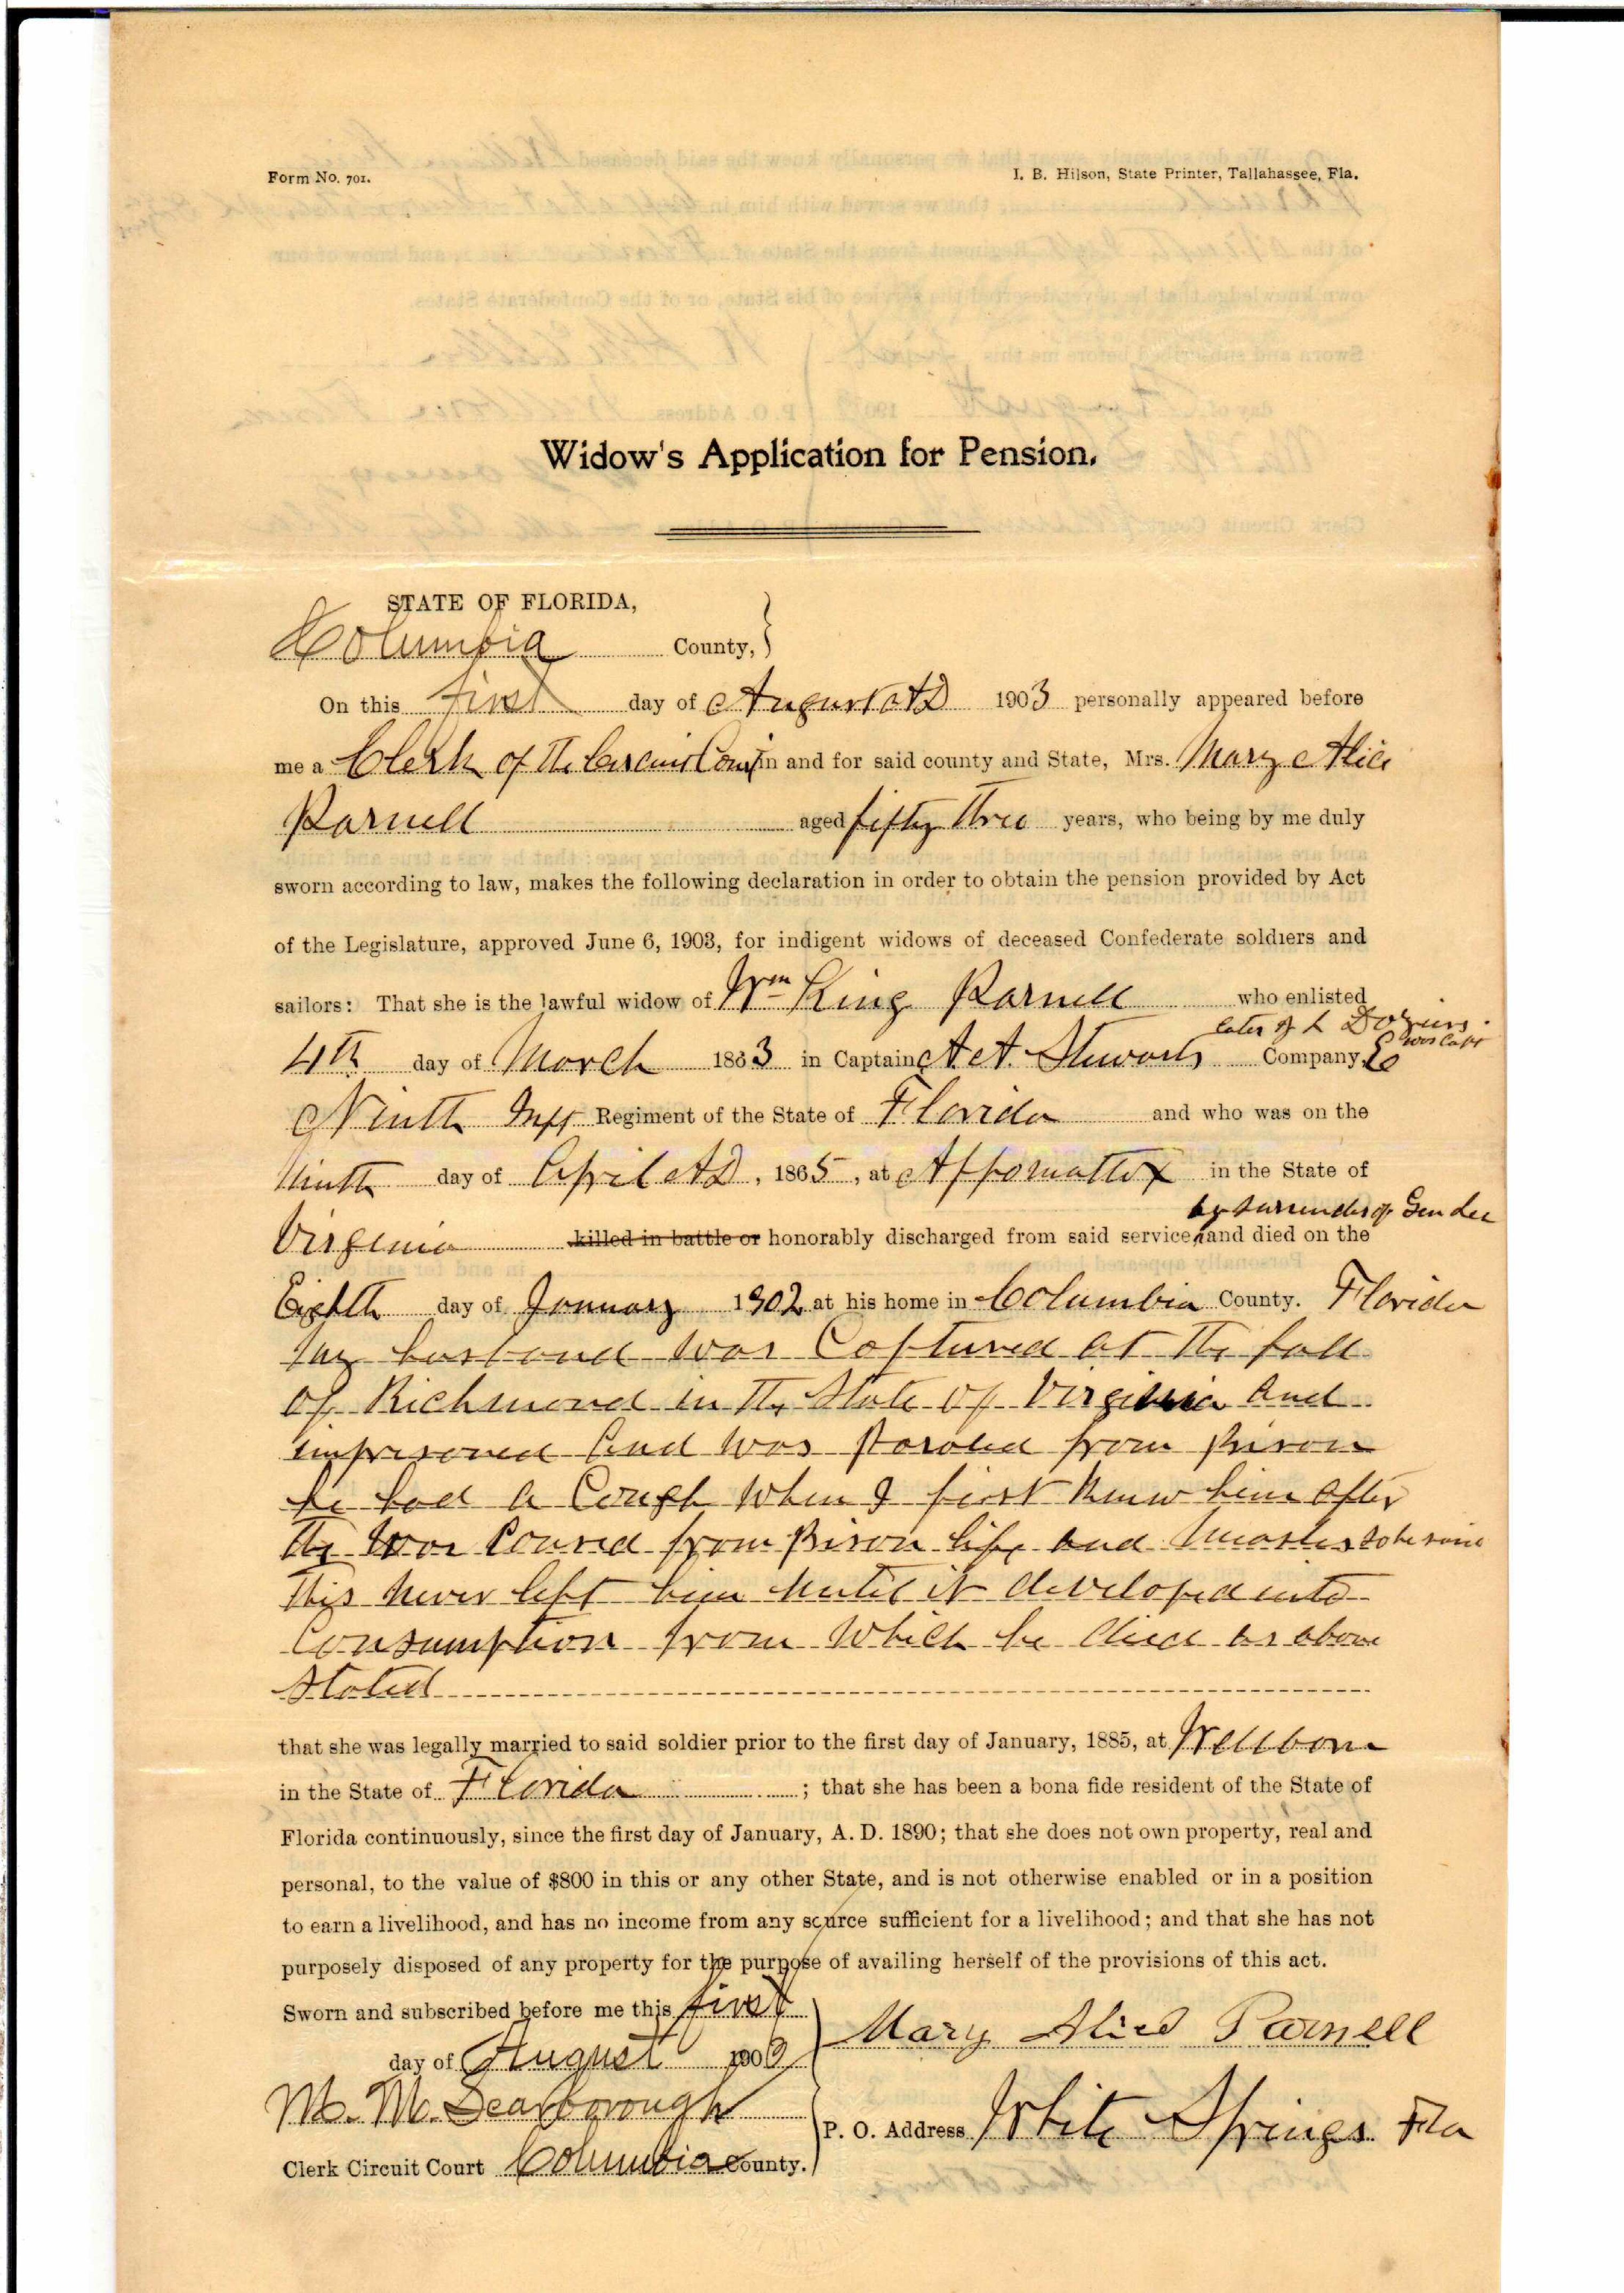 Form No. 701.
I. B. Hilson, State Printer, Tallahassee, Fla.
Widow's Application for Pension.
STATE OF FLORIDA,
Columbia County,
On this first day of August AD 1903 personally appeared before
me a Clerk of the Circuit Court in and for said county and State, Mrs. Mary Alice
Parnell aged fifty three years, who being by me duly
sworn according to law, makes the following declaration in order to obtain the pension provided by Act
of the Legislature, approved June 6, 1903, for indigent widows of deceased Confederate soldiers and
sailors: That she is the lawful widow of Wm King Parnell who enlisted
later of
was Capt
4th day of March 1863 in Captain A. A. Stewarts Company, E
Ninth Inft Regiment of the State of Florida and who was on the
Ninth day of April AD, 1865, at Appomattox in the State of
by surrender of Gen Lee
Virginia killed in battle or honorably discharged from said service and died on the
Eighth day of January 1902 at his home in Columbia County. Florida
My husband was Captured at the fall
of Richmond in the State of Virginia and
imprisoned and was Paroled from Prison
he had a Cough when I first knew him after
the war Caused from Prison life and Measles so he said
This never left him until it developed into
Consumption from which he died as above
Stated
that she was legally married to said soldier prior to the first day of January, 1885, at Wellborn
in the State of Florida ; that she has been a bona fide resident of the State of
Florida continuously, since the first day of January, A. D. 1890; that she does not own property, real and
personal, to the value of $800 in this or any other State, and is not otherwise enabled or in a position
to earn a livelihood, and has no income from any source sufficient for a livelihood; and that she has not
purposely disposed of any property for the purpose of availing herself of the provisions of this act.
Sworn and subscribed before me this first
day of August 1903
Mary Alice Parnell
M. M. Scarborough
P. O. Address White Springs Fla
Clerk Circuit Court Columbia County.